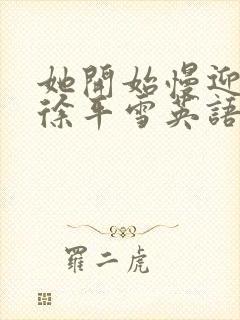 她開始慢迎
徐平雪英語
羅二虎